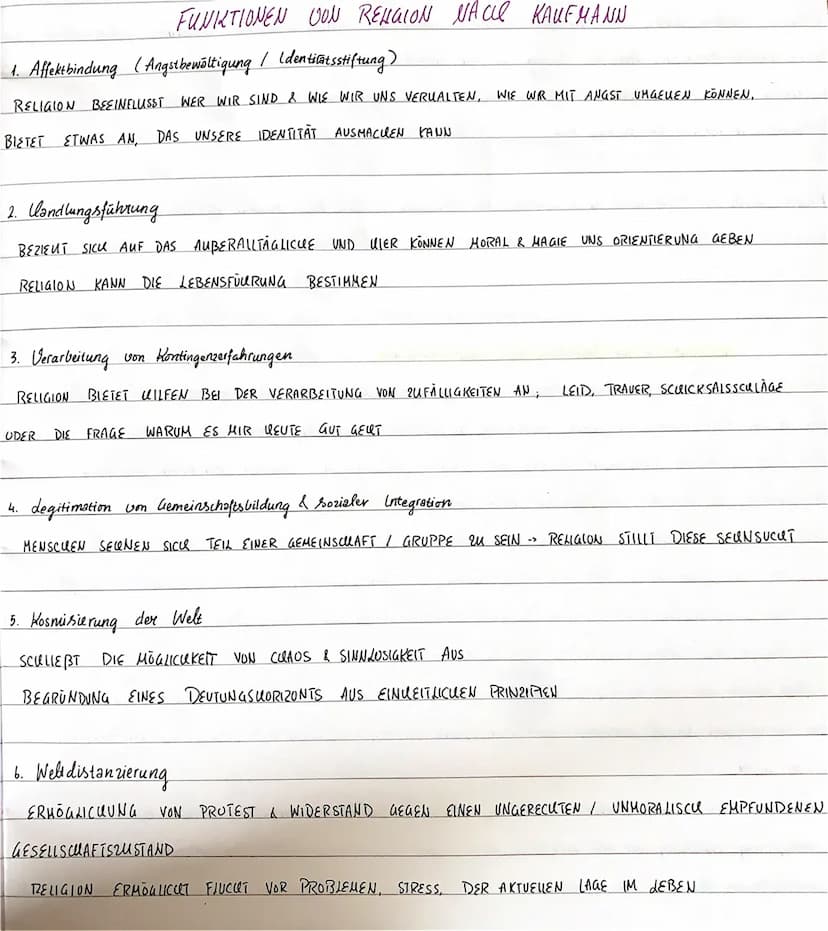 FUNKTIONEN VON RELIGION NACH KAUFMANN
1. Affektbindung (Angstbewältigung / Identitätsstiftung)
RELIGION BEEINFLUSST WER WIR SIND & WIE WIR UNS VERHALTEN, WIE WIR MIT ANGST UMGEHEN KÖNNEN,
BIETET ETWAS AN, DAS UNSERE IDENTITÄT AUSMACHEN KANN
2. Handlungsführung
BEZIEHT SICH AUF DAS AUßERALLTÄGLICHE UND HIER KÖNNEN MORAL & MAGIE UNS ORIENTIERUNG GEBEN
RELIGION KANN DIE LEBENSFÜHRUNG BESTIMMEN
3. Verarbeitung von Kontingenzerfahrungen
RELIGION BIETET HILFEN BEI DER VERARBEITUNG VON ZUFÄLLIGKEITEN AN; LEID, TRAUER, SCHICKSALSSCHLÄGE
ODER DIE FRAGE WARUM ES MIR HEUTE GUT GEHT
4. Legitimation von Gemeinschaftsbildung & sozialer Integration
MENSCHEN SEHNEN SICH TEIL EINER GEMEINSCHAFT / GRUPPE ZU SEIN -> RELIGION STILLT DIESE SEHNSUCHT
5. Kosmisierung der Welt
SCHLIEßT DIE MÖGLICHKEIT VON CHAOS & SINNLOSIGKEIT AUS
BEGRÜNDUNG EINES DEUTUNGSHORIZONTS AUS EINHEITLICHEN PRINZIPIEN
6. Weltdistanzierung
ERMÖGLICHUNG VON PROTEST & WIDERSTAND GEGEN EINEN UNGERECHTEN / UNMORALISCH EMPFUNDENEN
GESELLSCHAFTSZUSTAND
RELIGION ERMÖGLICHT FLUCHT VOR PROBLEMEN, STRESS, DER AKTUELLEN LAGE IM LEBEN